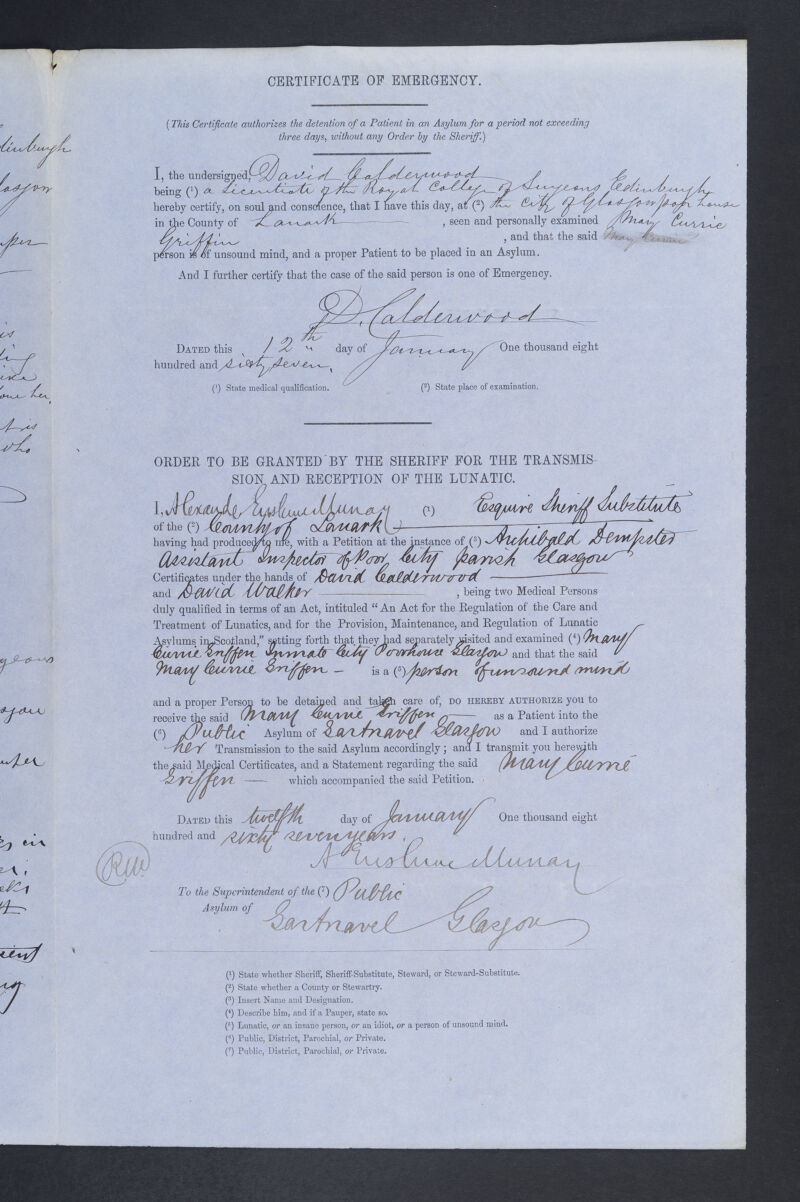 CERTIFICATE OF EMERGENCY.
(This Certificate authorizes the detention of a Patient in an Asylum for a period not exceeding
three days, without any Order by the Sheriff.)
I, the undersigned, David Calderwood
being (1) a Licentiate of the Royal College of Surgeons Edinburgh
hereby certify, on soul and conscience, that I have this day, at (2) the City of Glasgow poor house
in the County of Lanark, seen and personally examined Mary Currie
Griffin, and that the said Mary Currie
person is of unsound mind, and a proper Patient to be placed in an Asylum.
And I further certify that the case of the said person is one of Emergency.
D. Calderwood
DATED this 12th day of January One thousand eight
hundred and sixty seven.
(1) State medical qualification. (2) State place of examination.
ORDER TO BE GRANTED BY THE SHERIFF FOR THE TRANSMIS-
SION AND RECEPTION OF THE LUNATIC.
I, Alexander Erskine Murray (1) Esquire Sheriff Substitute
of the (2) County of Lanark
having had produced to me, with a Petition at the instance of (3) Archibald Dempster
Assistant Inspector of Poor City parish Glasgow
Certificates under the hands of David Calderwood
and David Walker, being two Medical Persons
duly qualified in terms of an Act, intituled "An Act for the Regulation of the Care and
Treatment of Lunatics, and for the Provision, Maintenance, and Regulation of Lunatic
Asylums in Scotland," setting forth that they had separately visited and examined (4) Mary
Currie Griffen Inmate City Poorhouse Glasgow and that the said
Mary Currie Griffen - is a (5) person of unsound mind
and a proper Person to be detained and taken care of, DO HEREBY AUTHORIZE you to
receive the said Mary Currie Griffen as a Patient into the
(6) Public Asylum of Gartnavel Glasgow and I authorize
her Transmission to the said Asylum accordingly; and I transmit you herewith
the said Medical Certificates, and a Statement regarding the said Mary Currie
Griffen - which accompanied the said Petition.
DATED this twelfth day of January One thousand eight
hundred and sixty seven years.
A Erskine Murray
RM
To the Superintendent of the (7) Public
Asylum of Gartnavel Glasgow
(1) State whether Sheriff, Sheriff-Substitute, Steward, or Steward-Substitute.
(2) State whether a County or Stewartry.
(3) Insert Name and Designation.
(4) Describe him, and if a Pauper, state so.
(5) Lunatic, or an insane person, or an idiot, or a person of unsound mind.
(6) Public, District, Parochial, or Private.
(7) Public, District, Parochial, or Private.